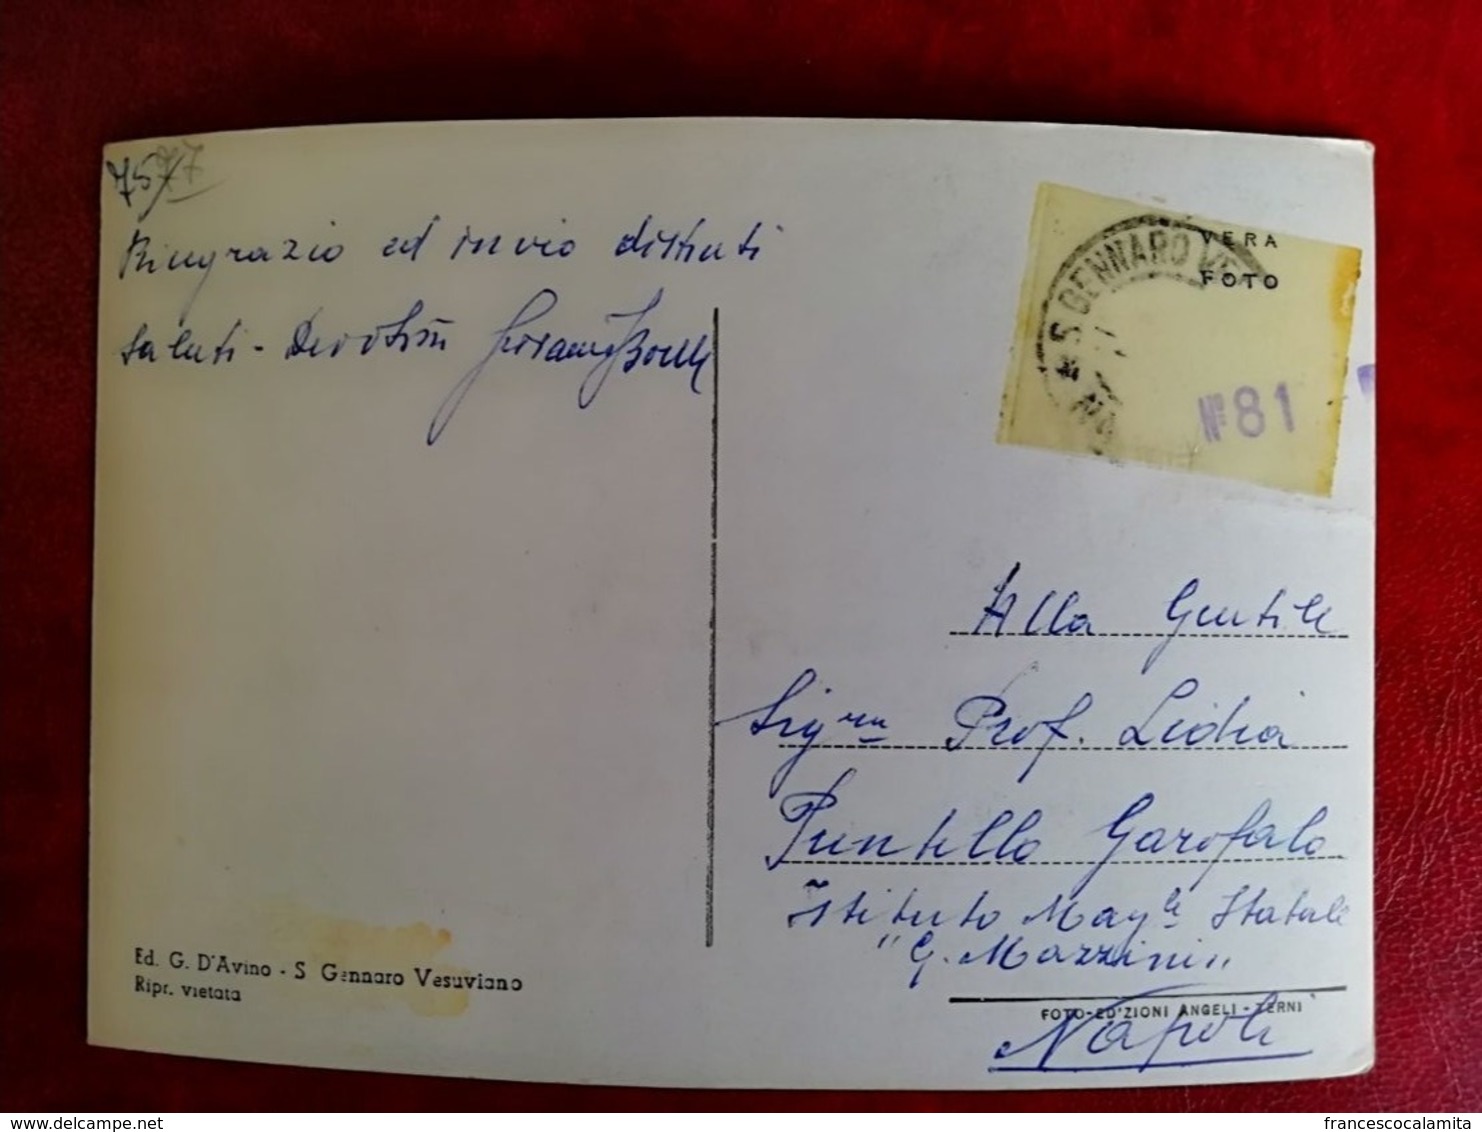 7577
Ringrazio ed invio distinti
saluti - Dev.otissi
VERA
FOTO
S. GENNARO VE
NA
N° 81
Alla Gentile
Sig.ra Prof. Lidia
Puntello Garofalo
Istituto Mag.le Statale
"G. Mazzini"
Napoli
Ed. G. D'Avino - S. Gennaro Vesuviano
Ripr. vietata
FOTO-ED'ZIONI ANGELI - TERNI
francescocalamita